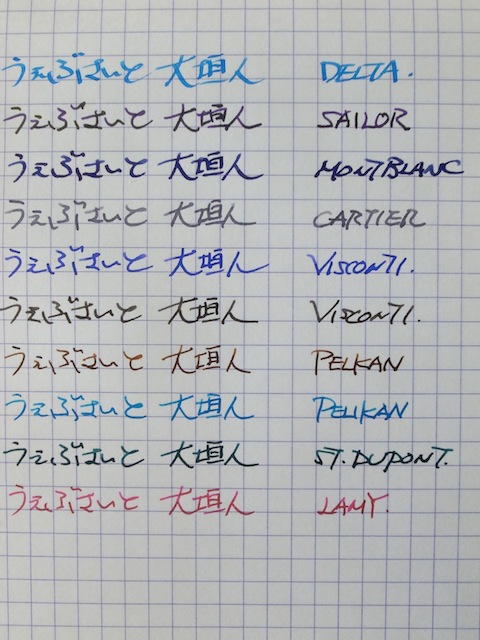 うぇぶさいと 大垣人 DELTA.
うぇぶさいと 大垣人 SAILOR
うぇぶさいと 大垣人 MONTBLANC
うぇぶさいと 大垣人 CARTIER
うぇぶさいと 大垣人 VISCONTI.
うぇぶさいと 大垣人 VISCONTI.
うぇぶさいと 大垣人 PELIKAN
うぇぶさいと 大垣人 PELIKAN
うぇぶさいと 大垣人 ST. DUPONT.
うぇぶさいと 大垣人 LAMY.